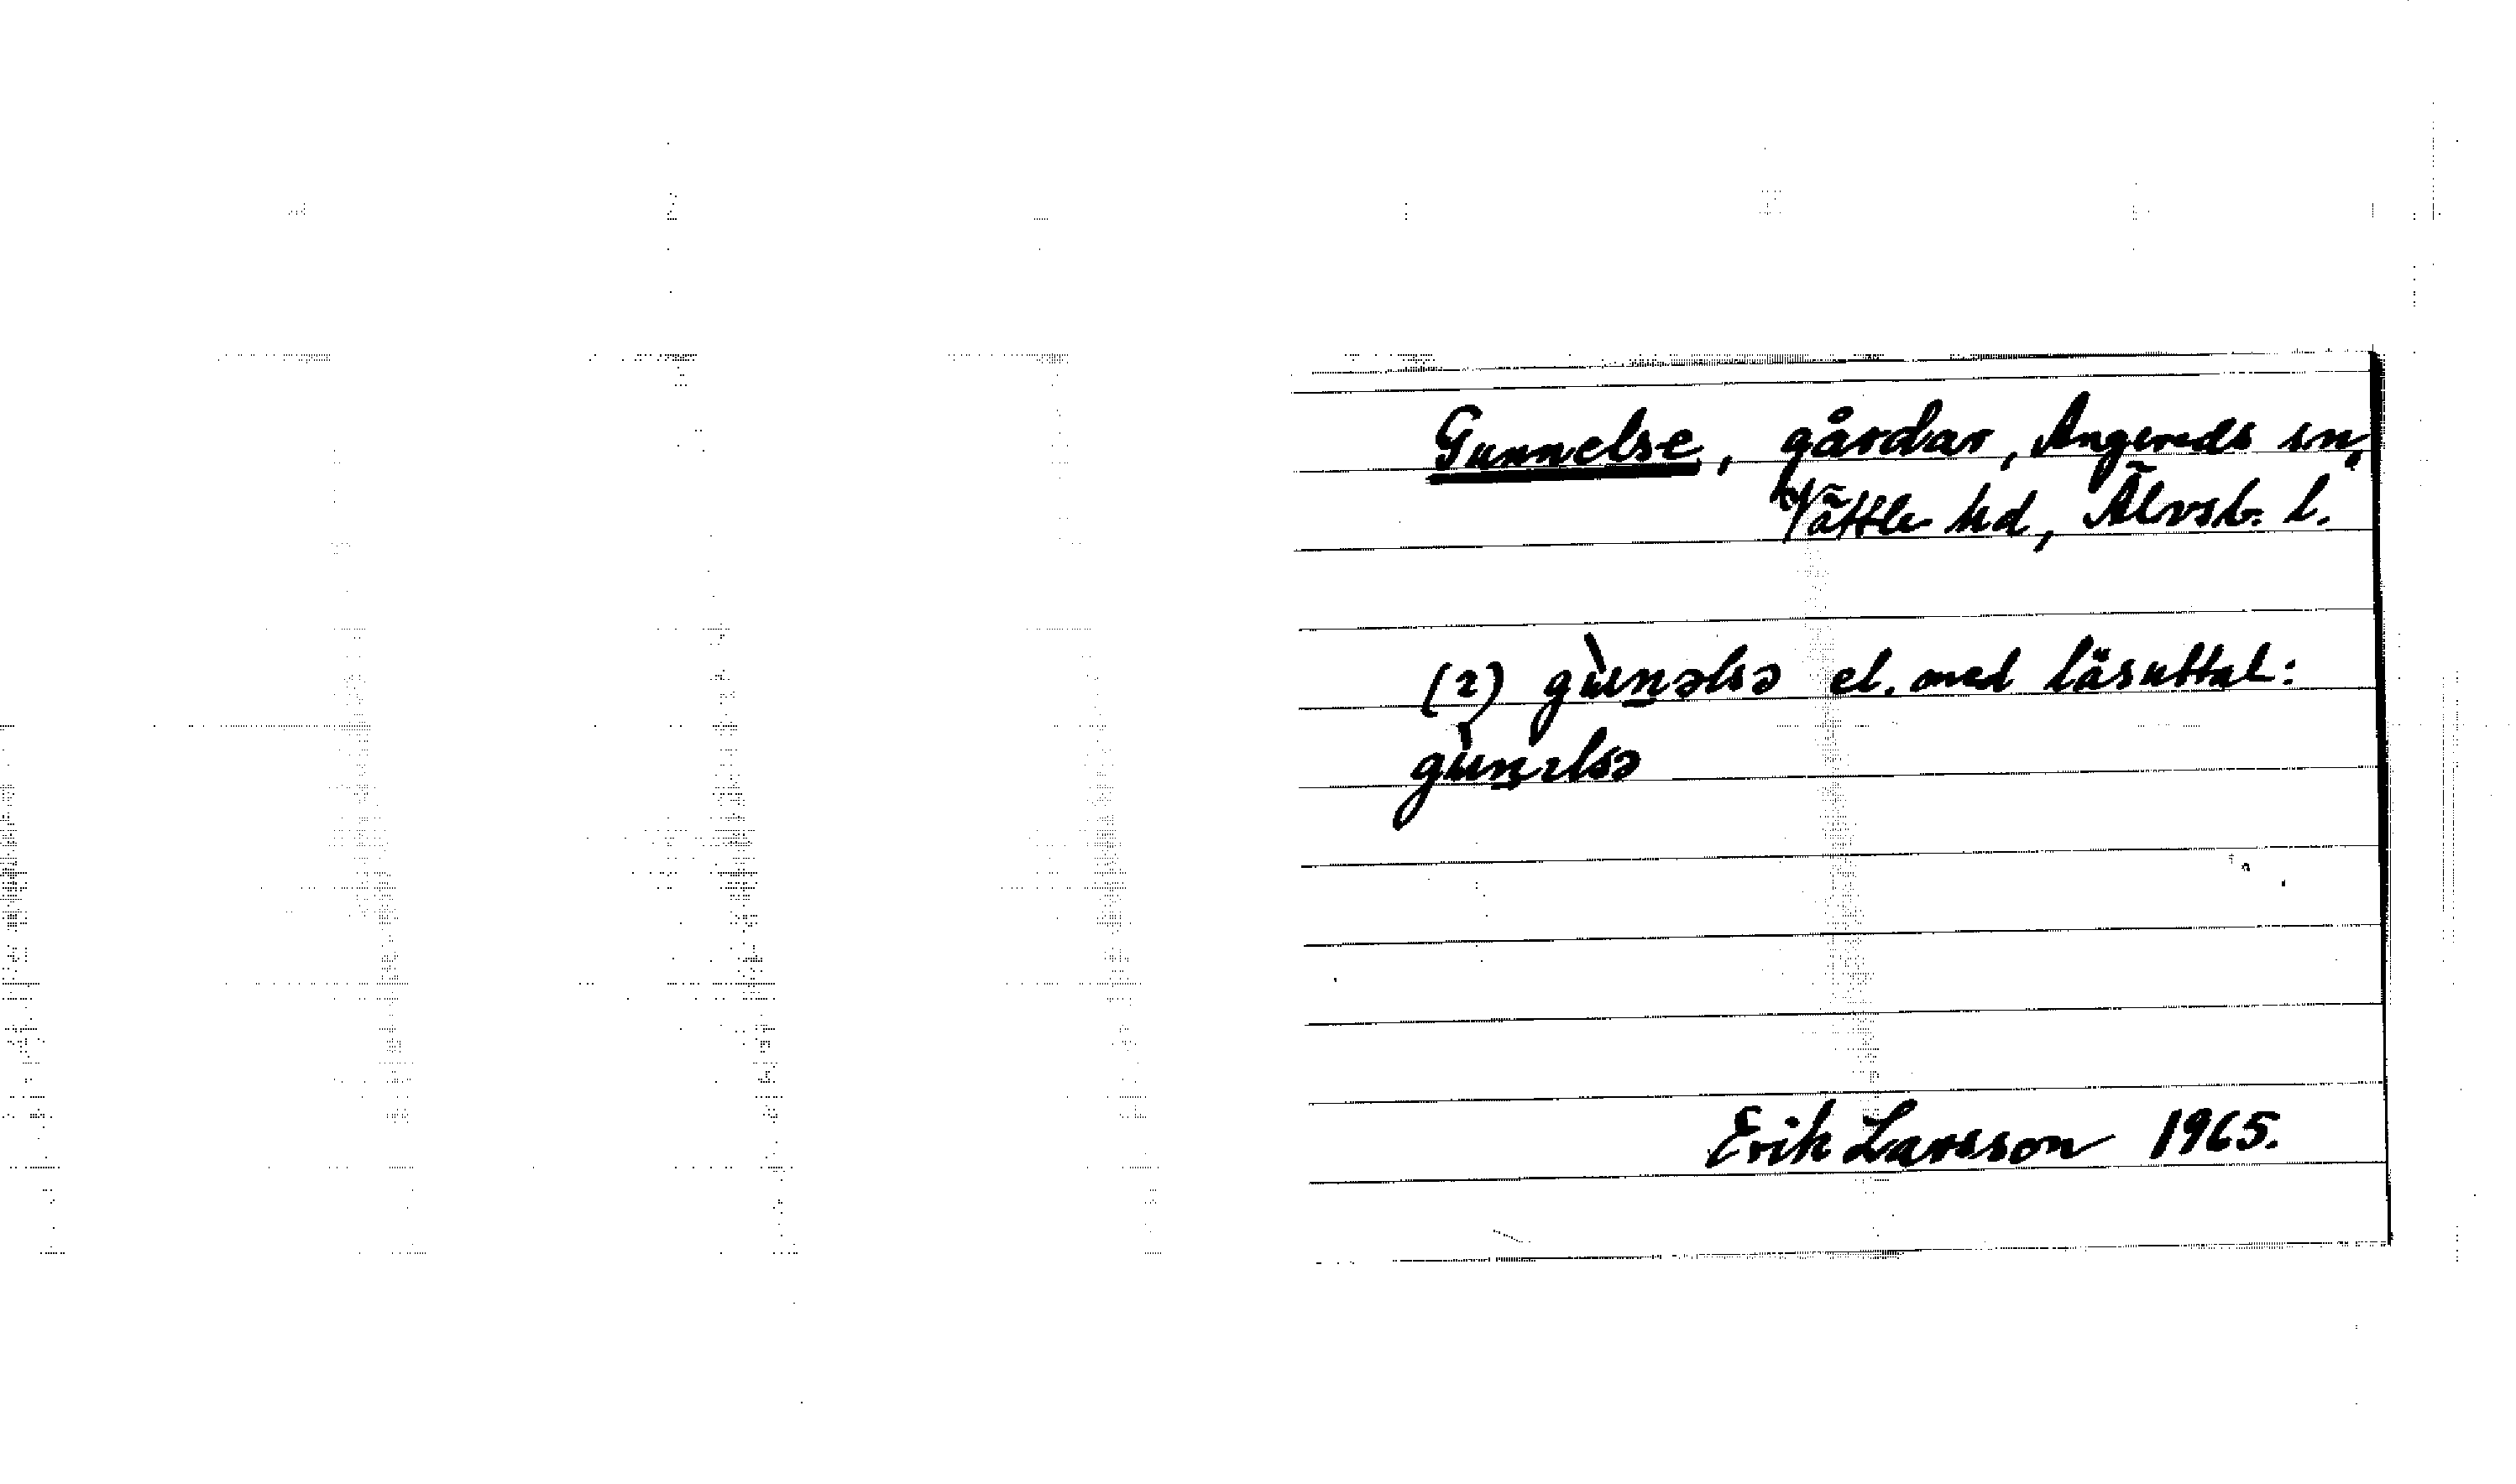 Gunnelse, gårdar, Angereds sn,
Vättle hd, Älvsb. l.
(2) gùn̲əlsə el. med läsuttal:
gùn̲ɛlsə
Erik Larsson 1965.